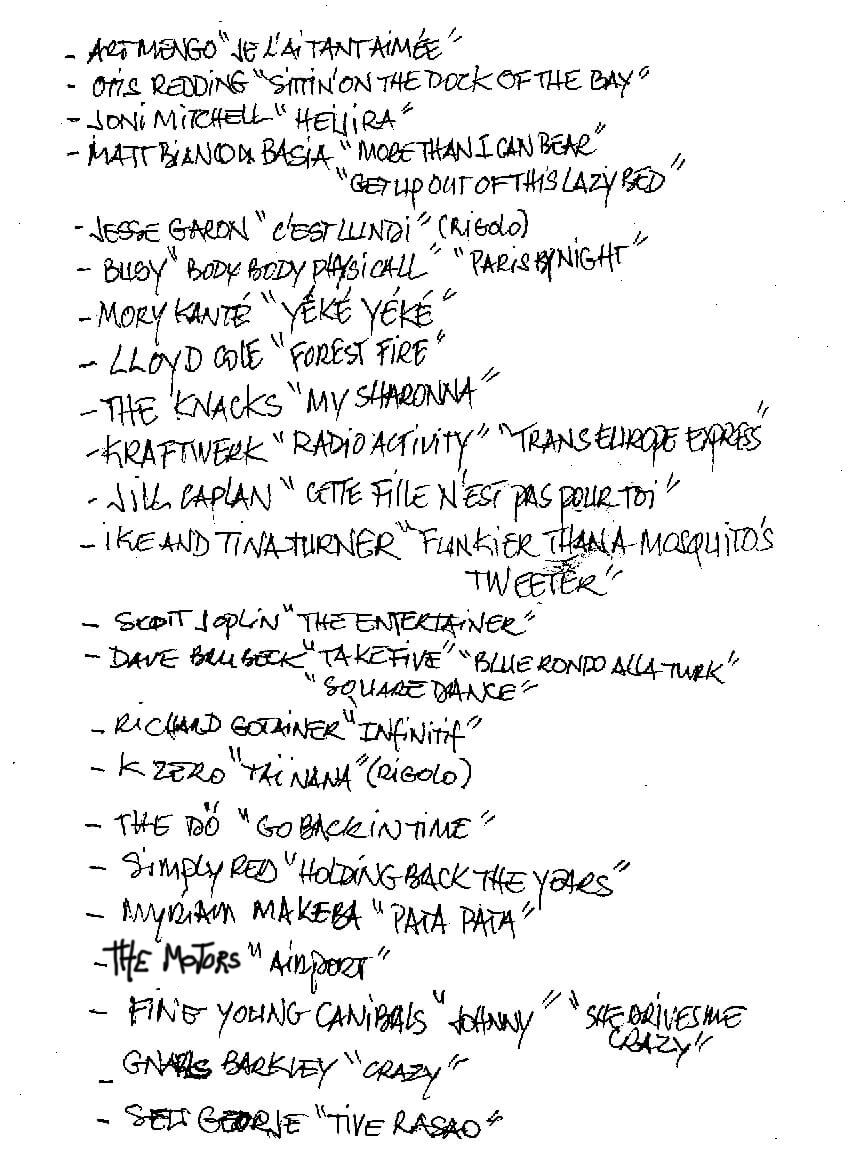 - ART MENGO "JE L'AI TANT AIMÉE"
- OTIS REDDING "SITTIN' ON THE DOCK OF THE BAY"
- JONI MITCHELL "HEIJIRA"
- MATT BIANCO & BASIA "MORE THAN I CAN BEAR"
"GET UP OUT OF THIS LAZY BED"
- JESSE GARON "C'EST LUNDI" (RIGOLO)
- BUSY "BODY BODY PHYSICALL" "PARIS BY NIGHT"
- MORY KANTÉ "YÉKÉ YÉKÉ"
- LLOYD COLE "FOREST FIRE"
- THE KNACKS "MY SHARONNA"
- KRAFTWERK "RADIO ACTIVITY" "TRANS EUROPE EXPRESS"
- JILL CAPLAN "CETTE FILLE N'EST PAS POUR TOI"
- IKE AND TINA TURNER "FUNKIER THAN A MOSQUITO'S
TWEETER"
- SCOTT JOPLIN "THE ENTERTAINER"
- DAVE BRUBECK "TAKE FIVE" "BLUE RONDO ALLA TURK"
"SQUARE DANCE"
- RICHARD GOTAINER "INFINITIF"
- K ZERO "TAÏ NANA" (RIGOLO)
- THE DÖ "GO BACK IN TIME"
- SIMPLY RED "HOLDING BACK THE YEARS"
- MYRIAM MAKEBA "PATA PATA"
- THE MOTORS "AIRPORT"
- FINE YOUNG CANIBALS "JOHNNY" "SHE DRIVES ME
CRAZY"
- GNARLS BARKLEY "CRAZY"
- SEU GEORJE "TIVE RASAO"